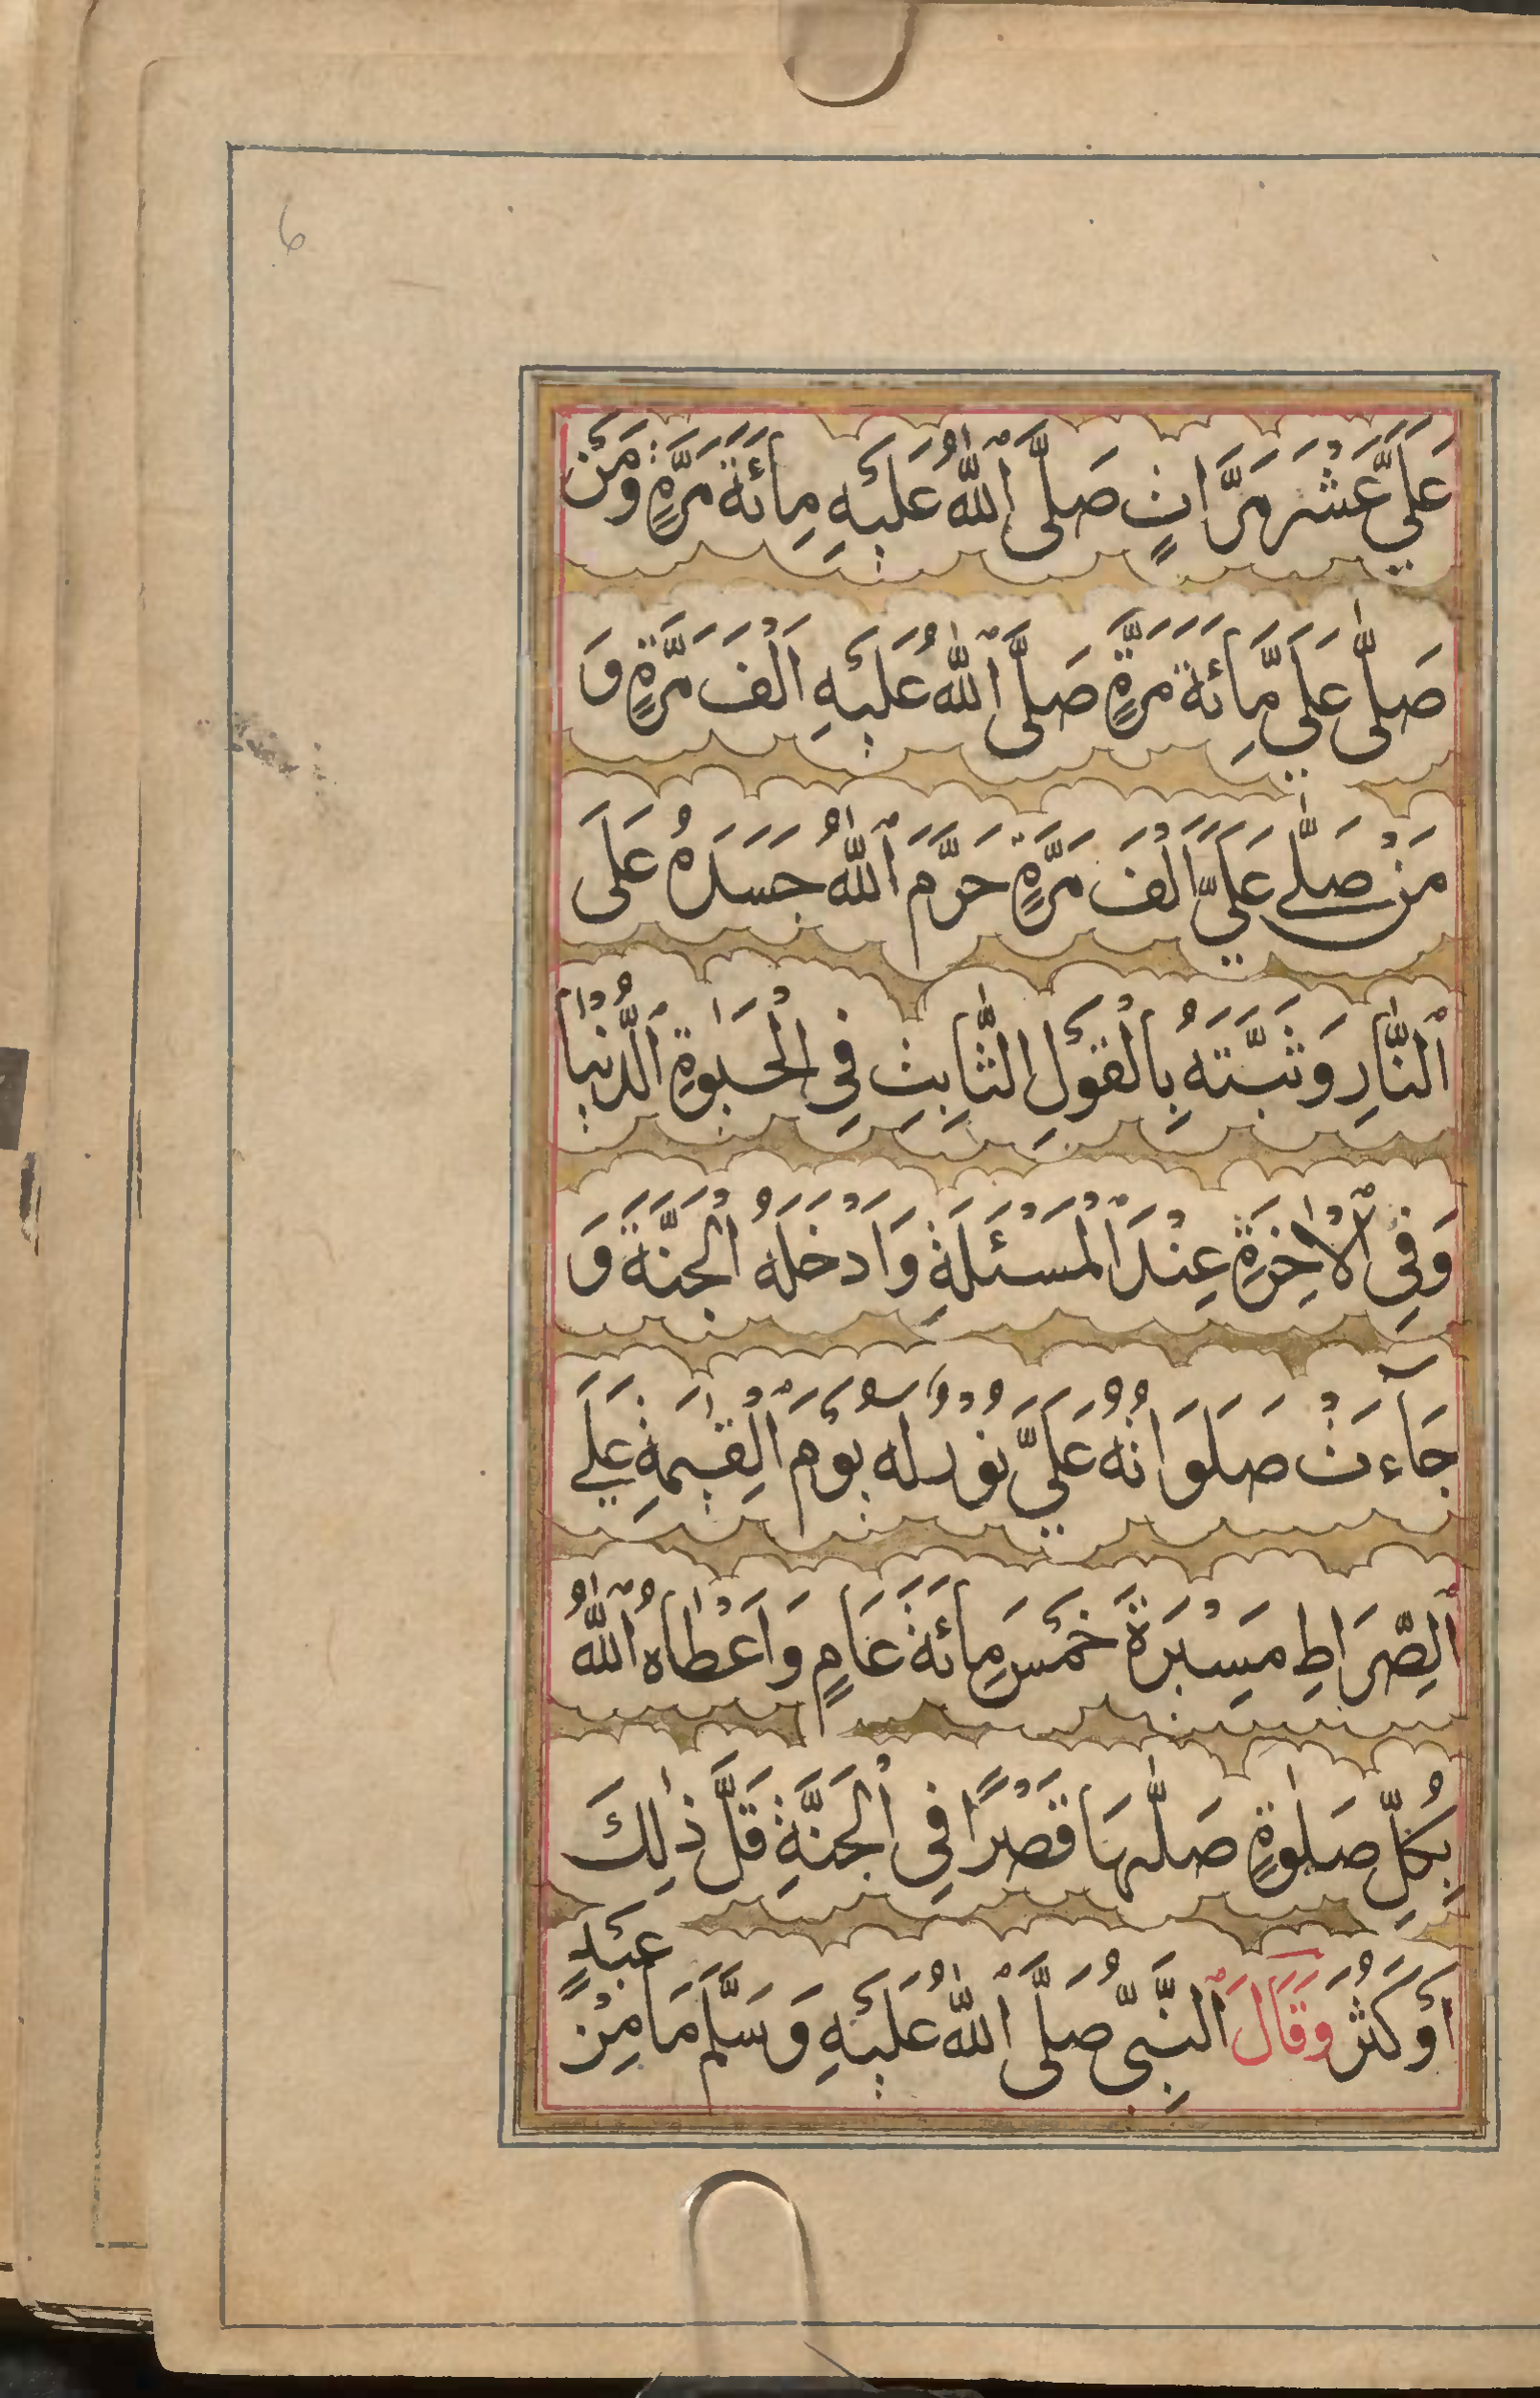 6
عَلَيَّ عَشْرَ مَرَّاتٍ صَلَّى ٱللّٰهُ عَلَيْهِ مِائَةَ مَرَّةٍ وَمَنْ
صَلّٰى عَلَيَّ مِائَةَ مَرَّةٍ صَلَّى ٱللّٰهُ عَلَيْهِ اَلْفَ مَرَّةٍ وَ
مَنْ صَلّٰے عَلَيَّ اَلْفَ مَرَّةٍ حَرَّمَ ٱللّٰهُ جَسَدَهُ عَلَى
ٱلنَّارِ وَثَبَّتَهُ بِالْقَوْلِ الثَّابِتِ فِي الْحَيٰوةِ ٱلدُّنْيَا
وَفِى ٱلْاٰخِرَةِ عِنْدَ الْمَسْئَلَةِ وَاَدْخَلَهُ الْجَنَّةَ وَ
جَآءَتْ صَلَوَاتُهُ عَلَيَّ نُورٌ لَهُ يَوْمَ ٱلْقِيٰمَةِ عَلَے
ٱلصِّرَاطِ مَسِيْرَةَ خَمْسَ مِائَةَ عَامٍ وَاَعْطَاهُ ٱللّٰهُ
بِكُلِّ صَلٰوةٍ صَلّٰىهَا قَصْرًا فِي الْجَنَّةِ قَلَّ ذٰلِكَ
اَوْ كَثُرَ وَقَالَ ٱلنَّبِيُّ صَلَّى ٱللّٰهُ عَلَيْهِ وَسَلَّمَ مَا مِنْ
عَبْدٍ